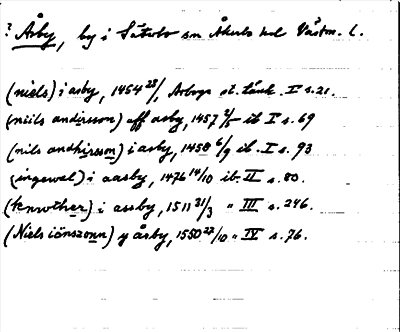 ? Åsby, by i Säterbo sn Åkerbo hd Västm. l.
(niels) i asby, 1454 28/1 Arboga st. tänk. I s. 21.
(niils andirsson) aff asby, 1457 2/5 ib I s. 69
(nils andhirsson) i asby, 1458 6/9 ib. I s. 93
(ingewal) i aasby, 1476 14/10 ib. II s. 80.
i assby, 1511 31/3 " III s. 246.
(Niels iönszonn) y åsby, 1550 22/10 " IV s. 76.